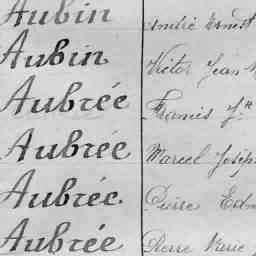 Aubin André Ernest
Aubin Victor Jean M
Aubrée Francis Jh
Aubrée Marcel Joseph
Aubrée Pierre Edm
Aubrée Pierre Marie